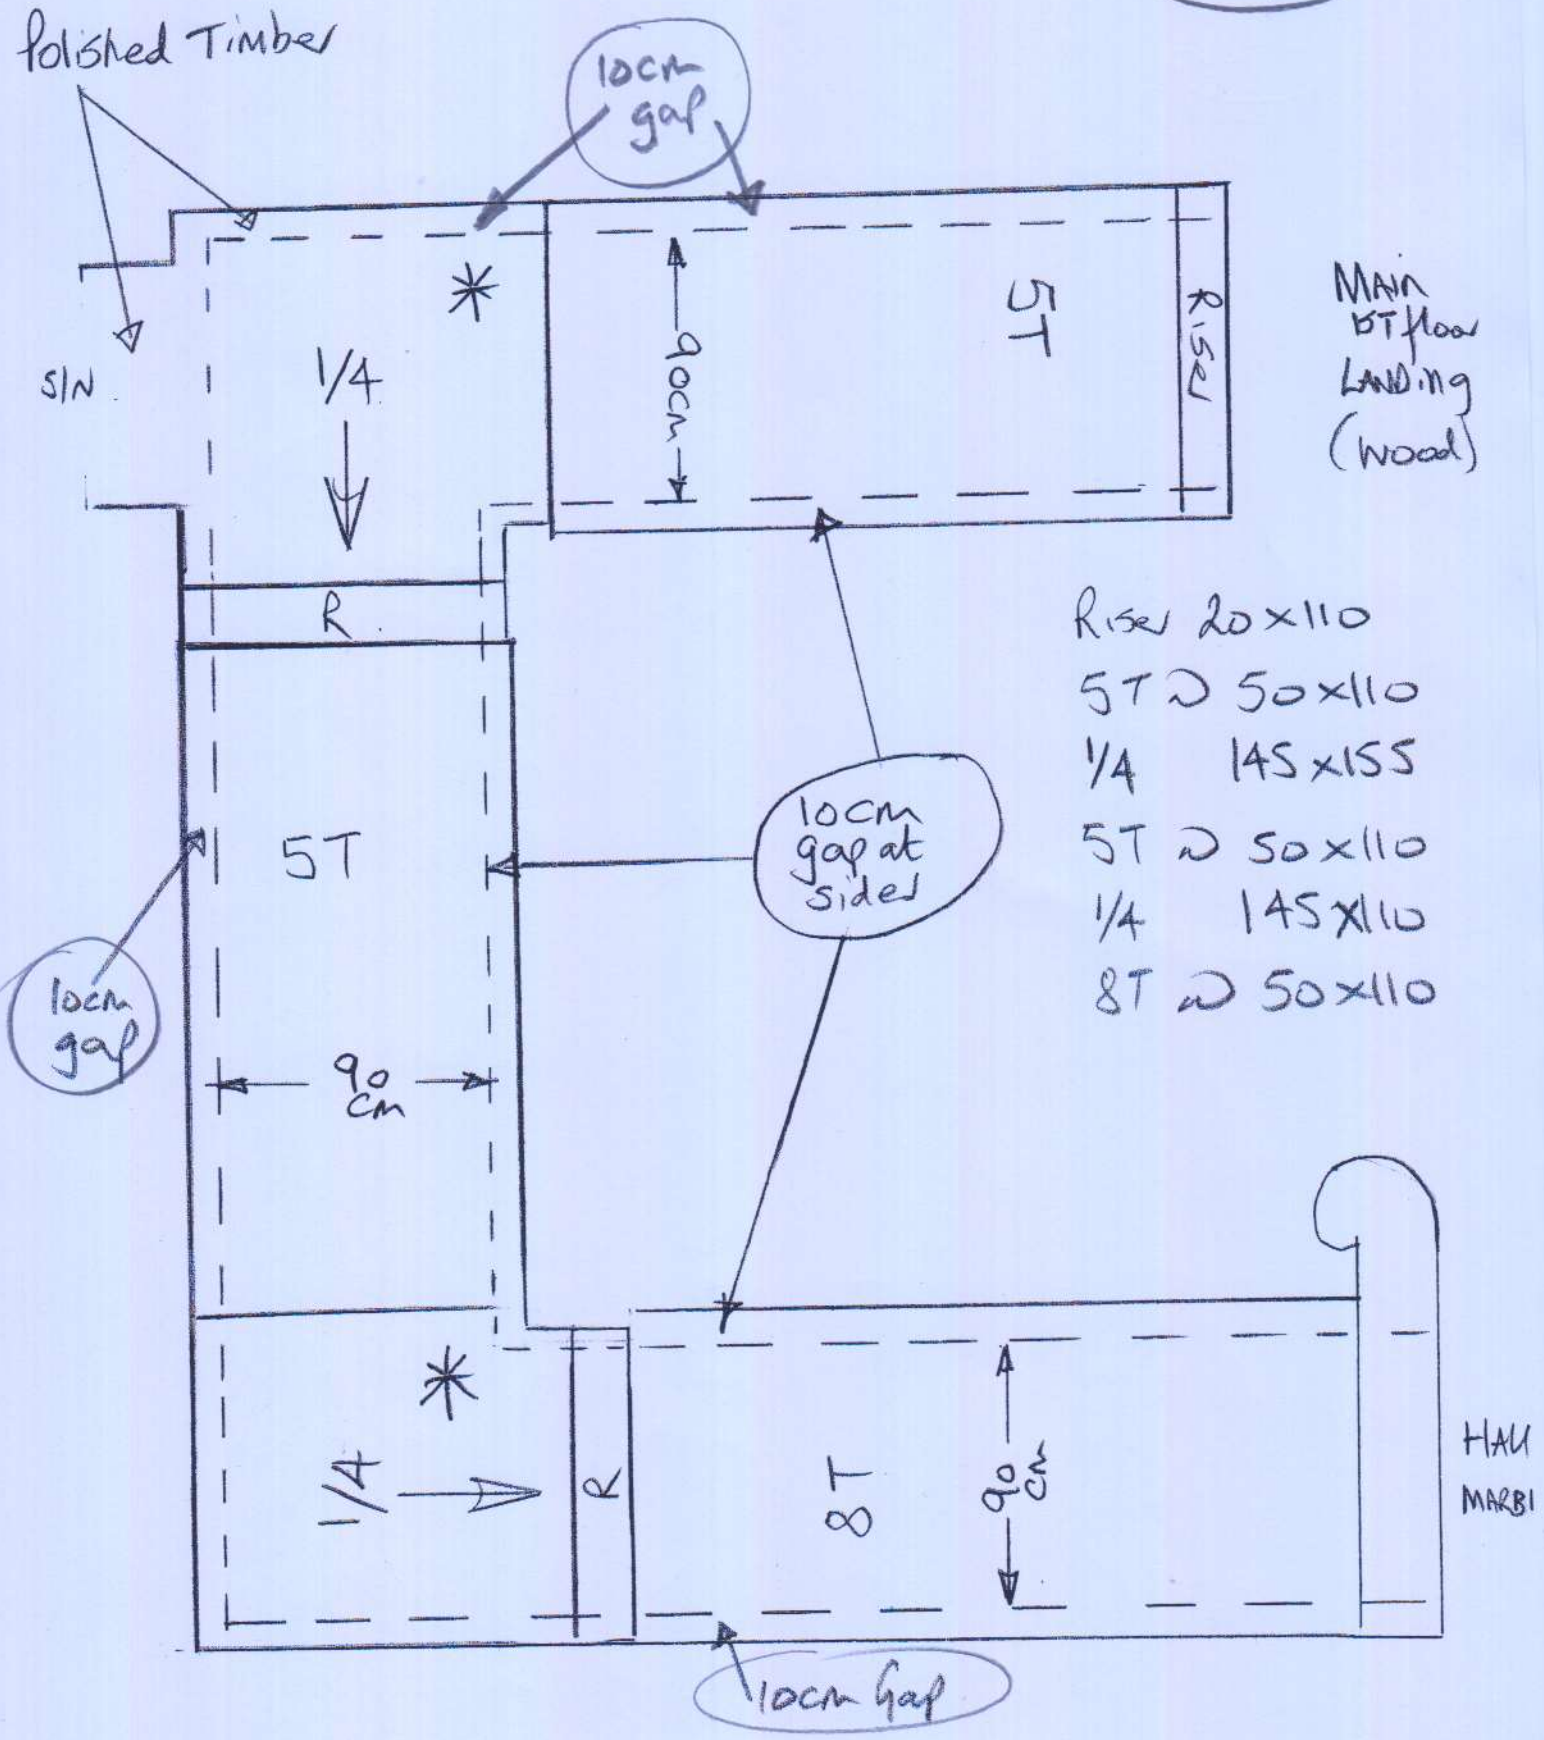 Polished Timber
10cm
gap
*
1/4
S/N
90cm
5T
Riser
Main
1ST floor
LANDing
(wood)
R
Riser 20x110
5T @ 50x110
1/4 145x155
5T @ 50x110
1/4 145x110
8T @ 50x110
10cm
gap at
sides
5T
10cm
gap
90
cm
*
1/4
R
8T
90
cm
HALL
MARBl
10cm Gap